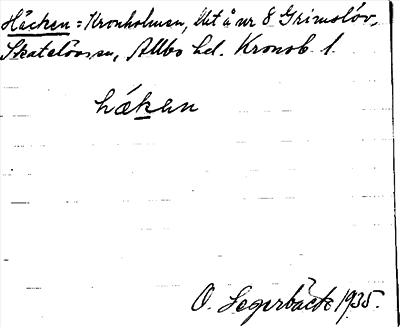 Häcken = Kronholmen, Mt å nr 8 Grimslöv,
Skatelövs sn, Allbo hd. Kronob. l.
håkan
O. Segerbäck 1935.